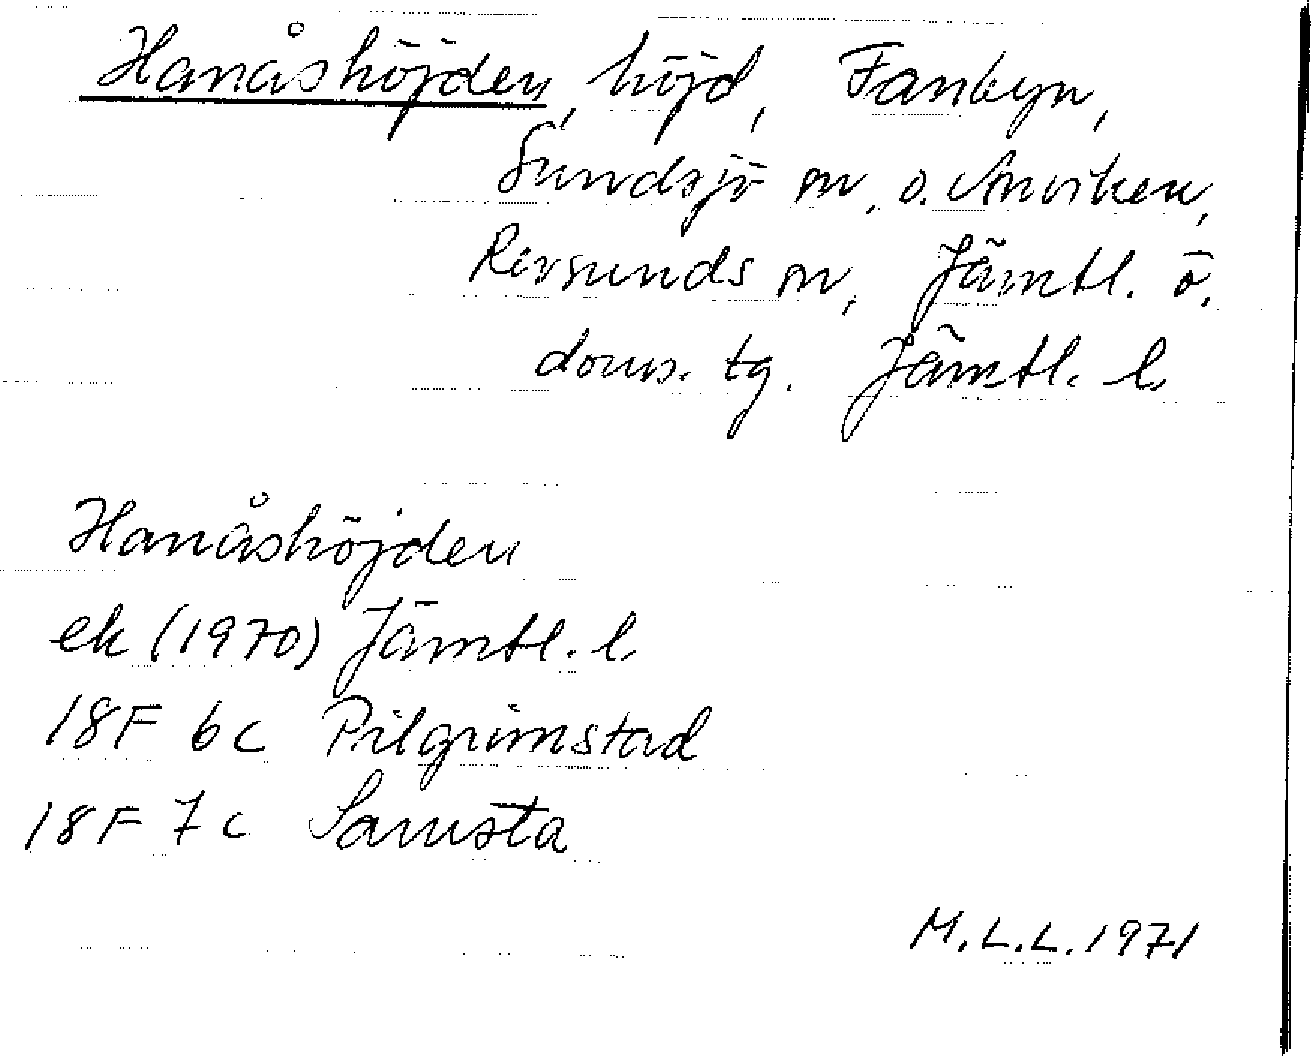 Hanåshöjden, höjd, Fanbyn,
Sundsjö sn, o. Anviken,
Revsunds sn, Jämtl. ö.
doms. tg. Jämtl. l.
Hanåshöjden
ek (1970) Jämtl. l.
18F 6c Pilgrimstad
18F 7c Samsta
M.L.L. 1971